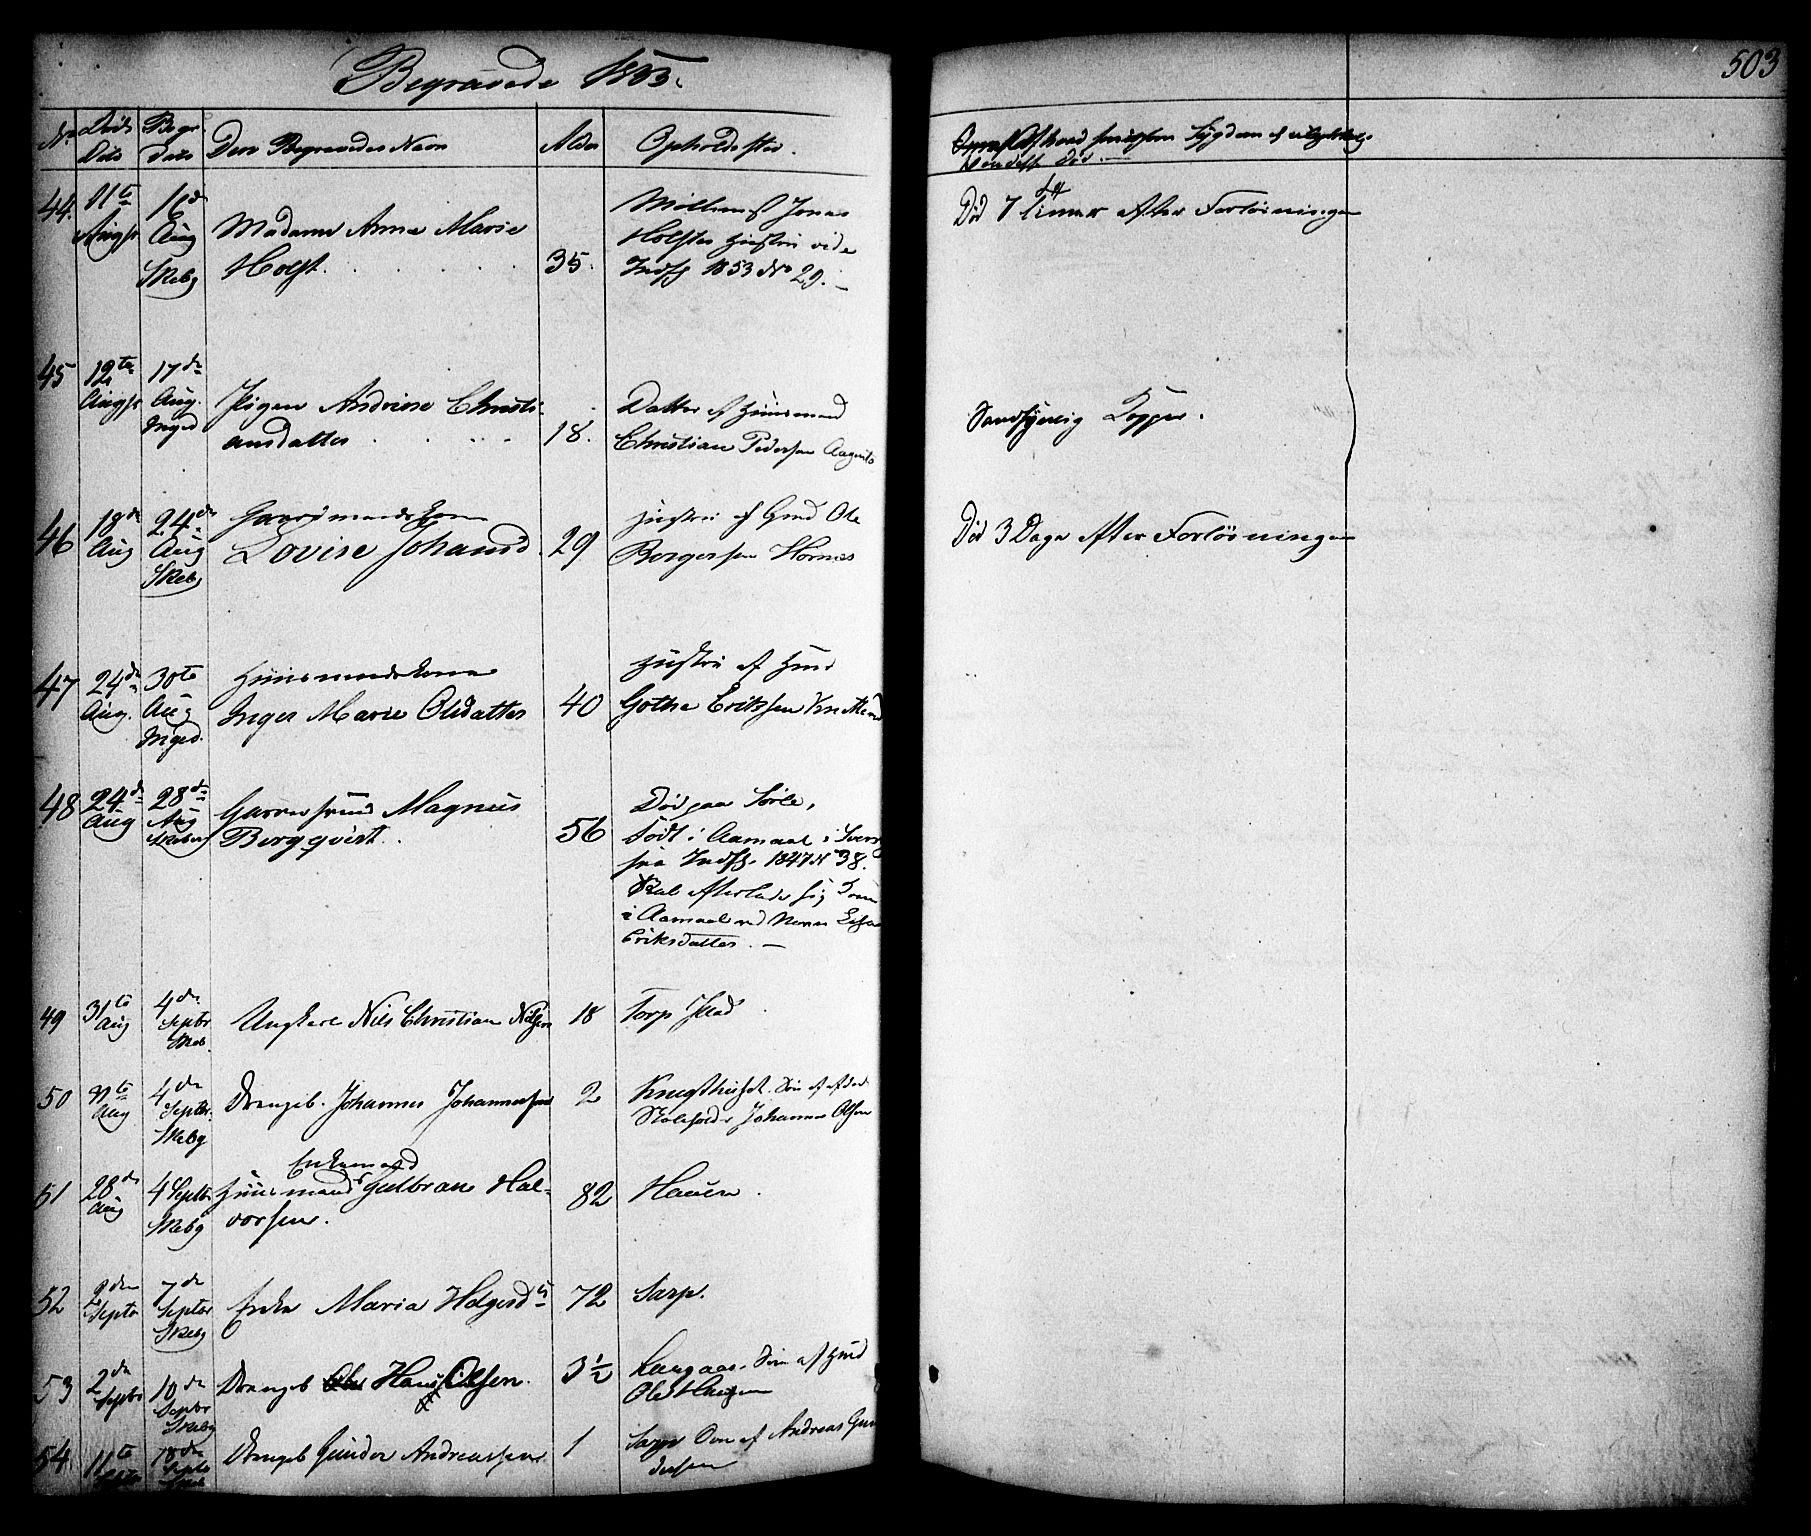 Begravede 1853.
503
Nr. Døds Dato Begr. Dato Den Begravedes Navn Alder Opholdssted.
44. 11te Aug 16de Aug Skebg Madame Anna Marie
Holst. 35.
Jonas
Holstes Hustru vide
Indfl 1853 No 29.
Død 7 Timer efter Forløsningen
45 12te Aug 17de Aug. Inged Pigen Andrine Christi-
ansdatter 18.
Datter af Huusmand
Christian Pedersen
Sandsynlig Kopper.
46 18de Aug 24de Aug Skebg Gaardmandskone
Lovise Johansd. 29
Hustru af Grd Ole
Borgersen Hornes
Død 3 Dage efter Forløsningen
47 24de Aug. 30te Aug Inged. Huusmandskone
Inger Marie Olsdatter 40
Hustru af Huusm
Gothe Eriksen
48 24de Aug 28de Aug Skeberg Garversvend Magnus
Bergqvist. 56
Død paa
født i Aamaal i Sverrig
Indfl. 1847 N 38.
Skal efterlade sig Kone
i Aamaal ved Navn
Eriksdatter.
49 31te Aug 4de Septbr Skeb. Ungkarl Nils Christian Nilsen 18 Torp
50 31te Aug 4de Septbr. Skebg Drengeb. Johannes Johannessen 2 Søn af afdøde
Johannes Olsen
Enkemand
51 28de Aug 4 Septbr Skebg Huusmand Gulbran Hal-
vorsen. 82 Hauen.
52 2den Septbr 7de Septbr Skebg Enke Maria Holgersd. 72 Sarp.
53 2de Septbr 10de Septbr Skebg Drengeb Hans Olsen. 3½ Søn af Huusmd
54. 11te 18de Septbr Skeb Drengeb Gunder Andreassen 1 Sarp Søn af Andreas Gun-
dersen